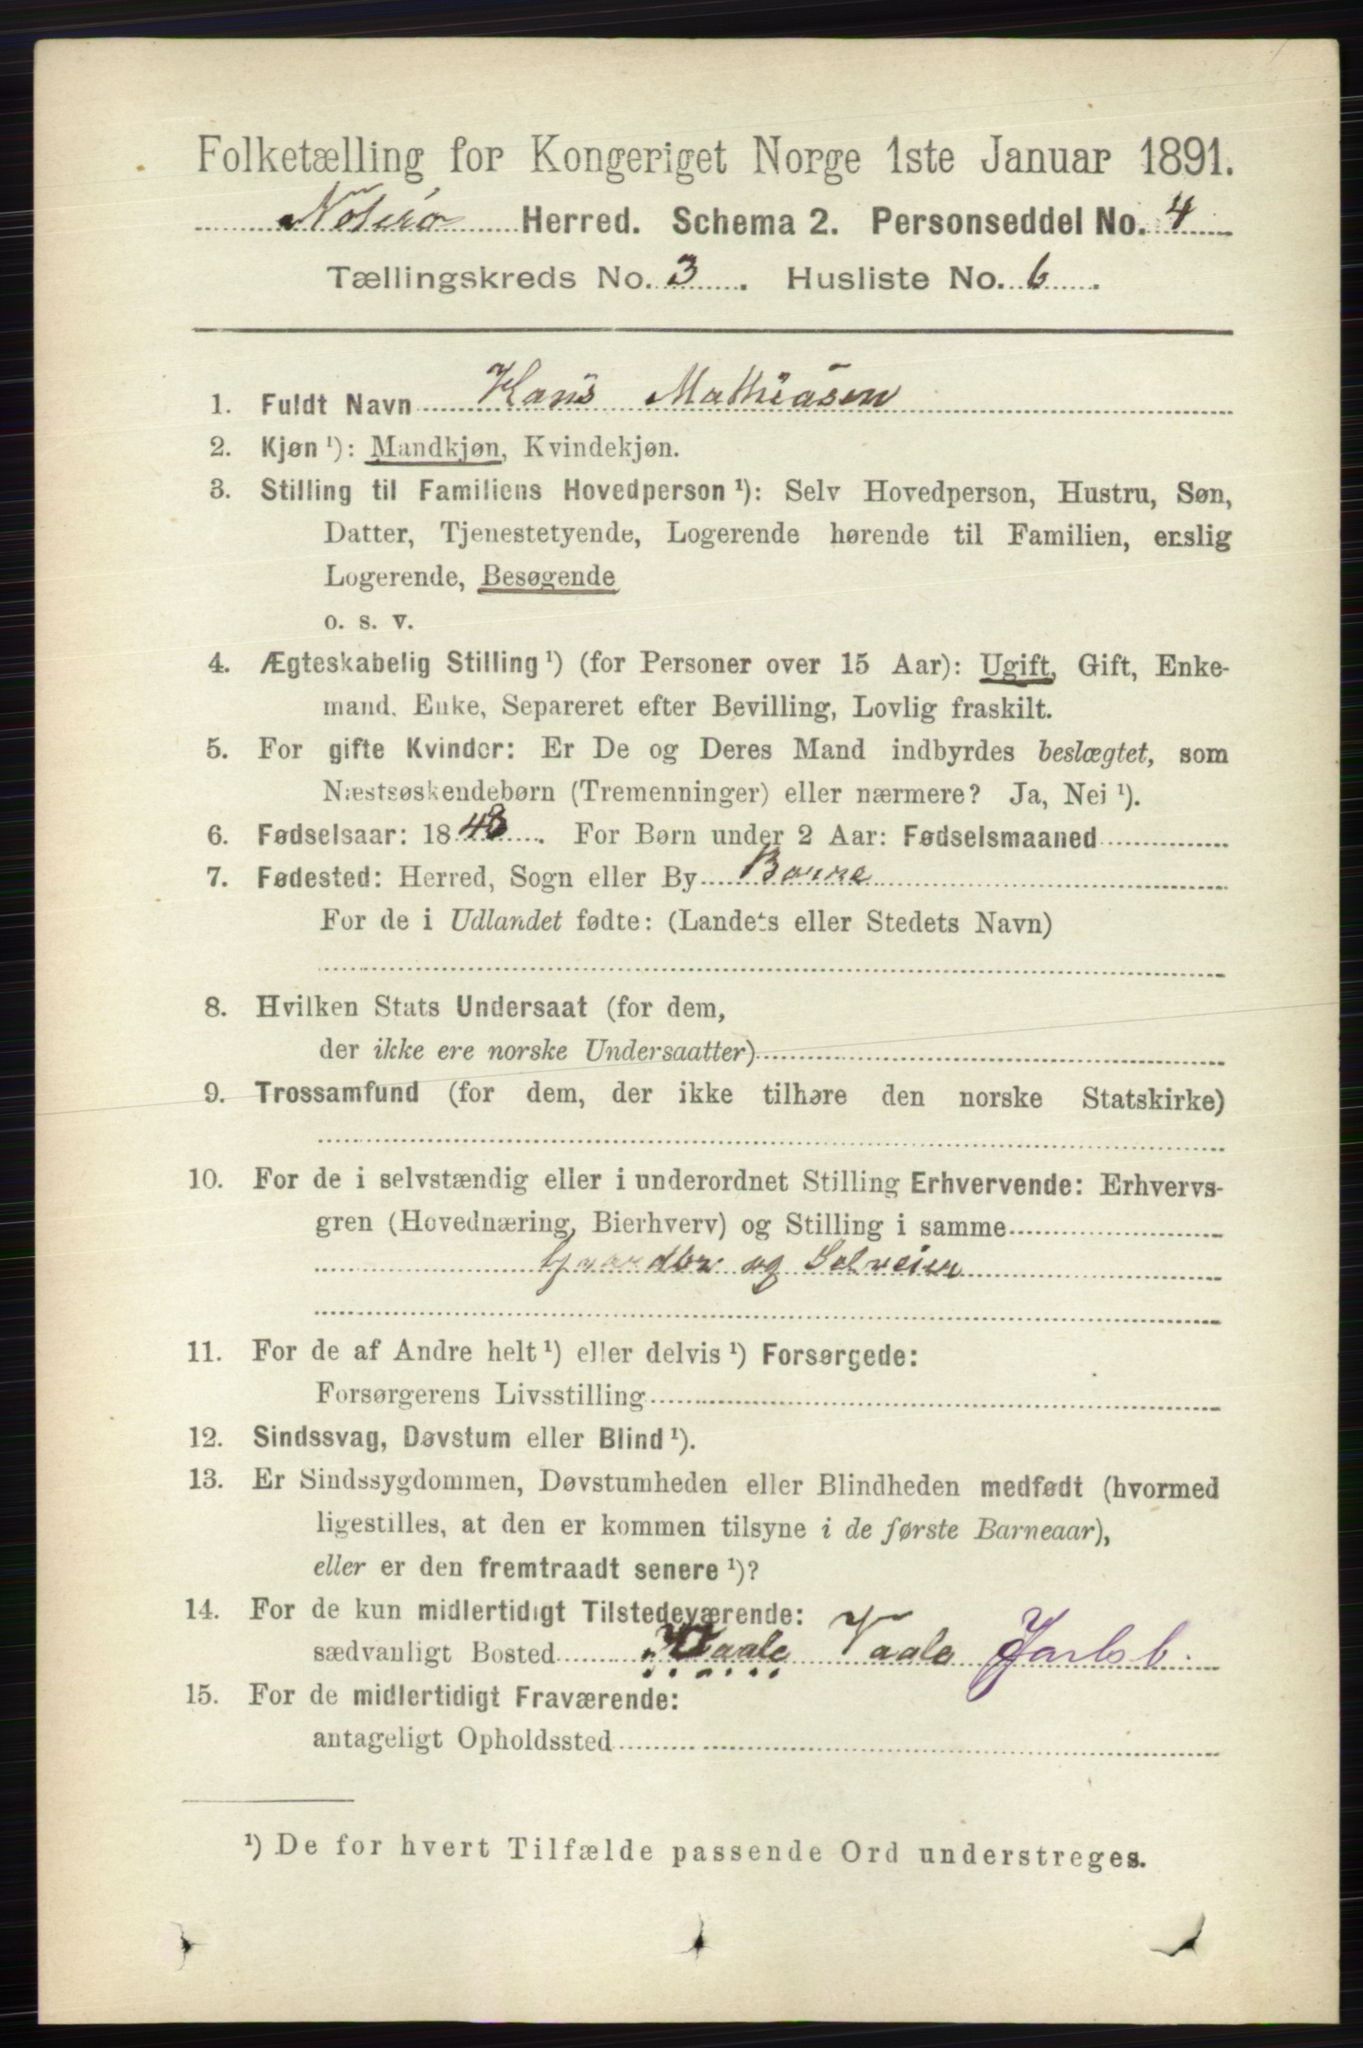 Folketælling for Kongeriget Norge 1ste Januar 1891.
Nøterø Herred. Schema 2. Personseddel No. 4
Tællingskreds No. 3. Husliste No. 6.
1. Fuldt Navn Hans Mathiasen
2. Kjøn ¹): Mandkjøn, Kvindekjøn.
3. Stilling til Familiens Hovedperson ¹): Selv Hovedperson, Hustru, Søn,
Datter, Tjenestetyende, Logerende hørende til Familien, enslig
Logerende, Besøgende
o. s. v.
4. Ægteskabelig Stilling ¹) (for Personer over 15 Aar): Ugift, Gift, Enke-
mand, Enke, Separeret efter Bevilling, Lovlig fraskilt.
5. For gifte Kvinder: Er De og Deres Mand indbyrdes beslægtet, som
Næstsøskendebørn (Tremenninger) eller nærmere? Ja, Nei ¹).
6. Fødselsaar: 1848. For Børn under 2 Aar: Fødselsmaaned
7. Fødested: Herred, Sogn eller By Borre
For de i Udlandet fødte: (Landets eller Stedets Navn)
8. Hvilken Stats Undersaat (for dem,
der ikke ere norske Undersaatter)
9. Trossamfund (for dem, der ikke tilhøre den norske Statskirke)
10. For de i selvstændig eller i underordnet Stilling Erhvervende: Erhvervs-
gren (Hovednæring, Bierhverv) og Stilling i samme
Gaardbr og Selveier
11. For de af Andre helt ¹) eller delvis ¹) Forsørgede:
Forsørgerens Livsstilling
12. Sindssvag, Døvstum eller Blind ¹).
13. Er Sindssygdommen, Døvstumheden eller Blindheden medfødt (hvormed
ligestilles, at den er kommen tilsyne i de første Barneaar),
eller er den fremtraadt senere ¹)?
14. For de kun midlertidigt Tilstedeværende:
sædvanligt Bosted Vaale Vaale Jarlsb.
15. For de midlertidigt Fraværende:
antageligt Opholdssted
¹) De for hvert Tilfælde passende Ord understreges.